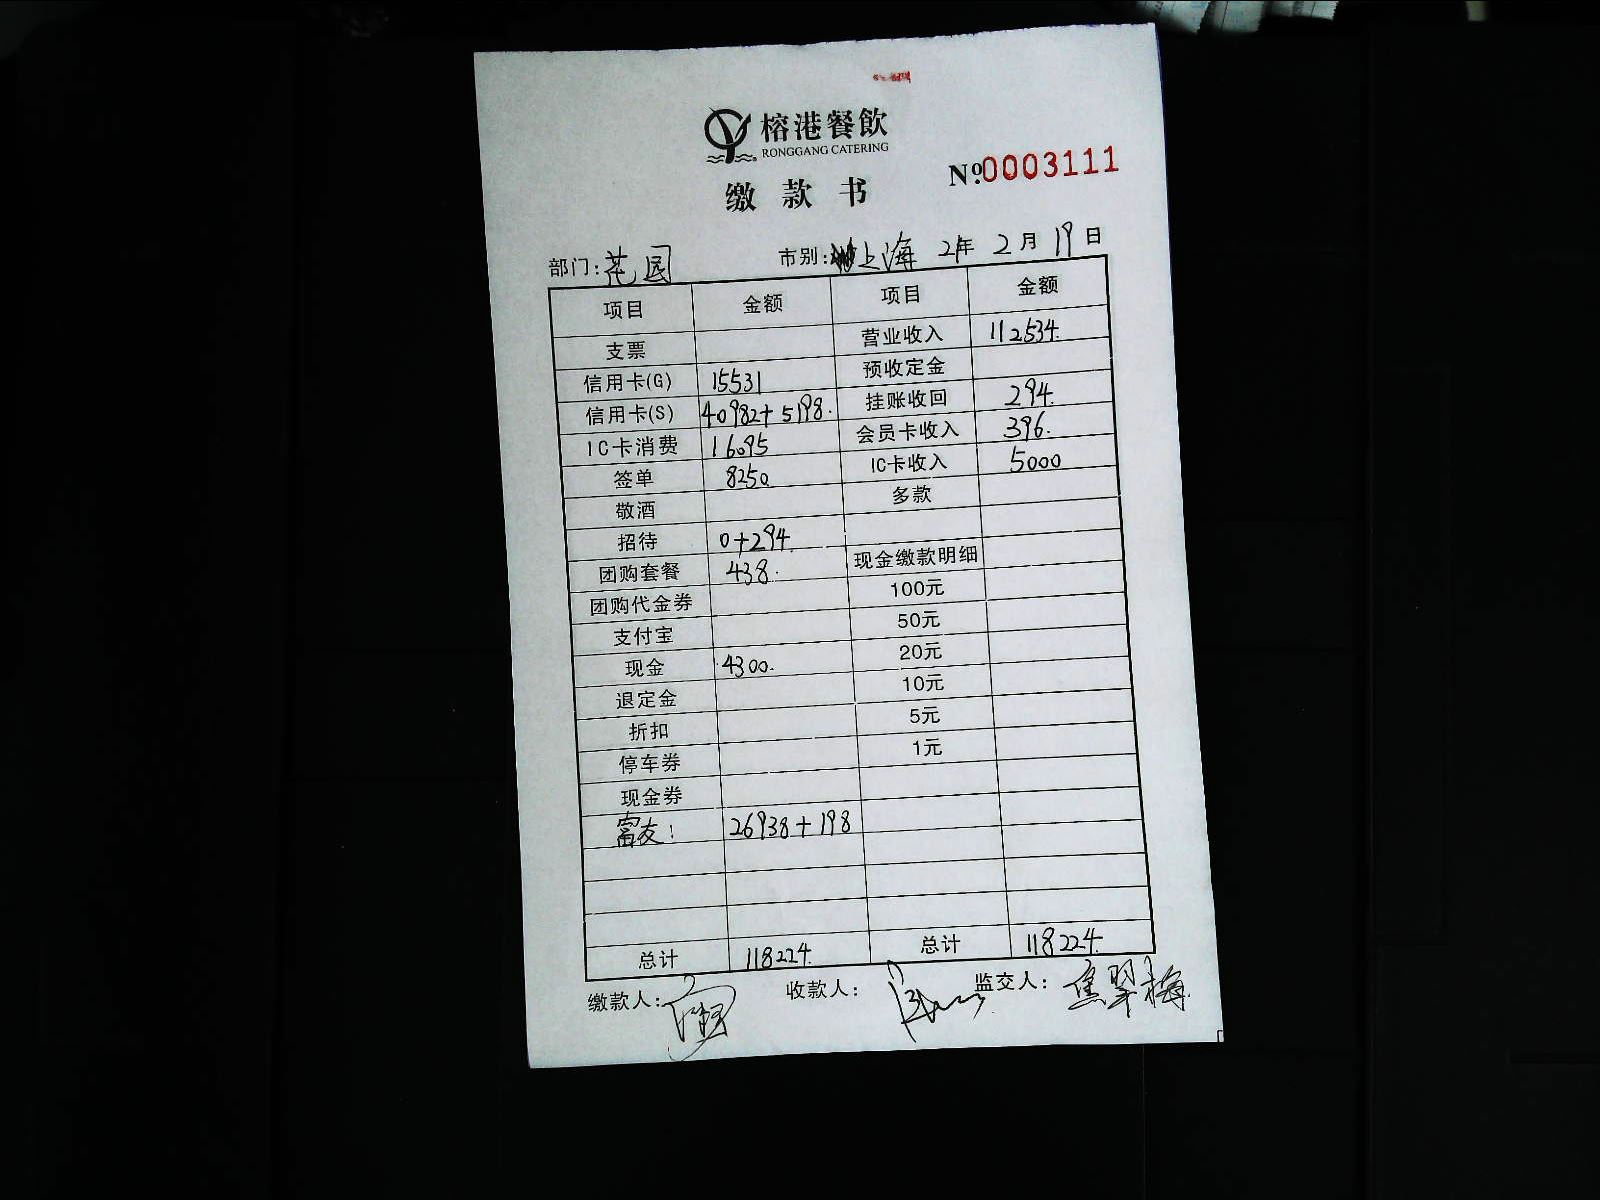 榕港餐飲
RONGGANG CATERING
№0003111
缴款书
部门:花园 市别:上海 21年 2月 19日
项目 金额 项目 金额
支票 营业收入 112534.
信用卡(G) 15531 预收定金
信用卡(S) 40982+5198. 挂账收回 294.
IC卡消费 16095 会员卡收入 396.
签单 8250. IC卡收入 5000
敬酒 多款
招待 0+294.
团购套餐 438. 现金缴款明细
团购代金券 100元
支付宝 50元
现金 4300. 20元
退定金 10元
折扣 5元
停车券 1元
现金券
富友: 26938+198
总计 118224. 总计 118224.
缴款人: 收款人: 监交人: 焦翠梅